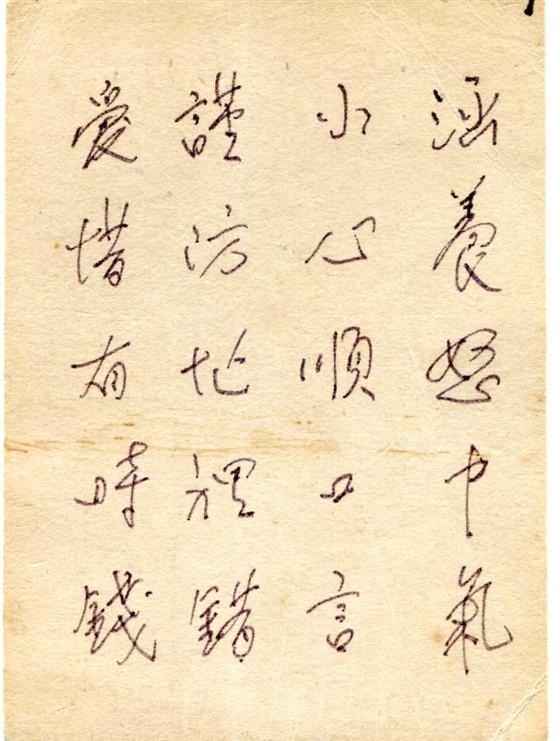 涵養怒中氣
小心順口言
謹防忙裡錯
愛惜有時錢